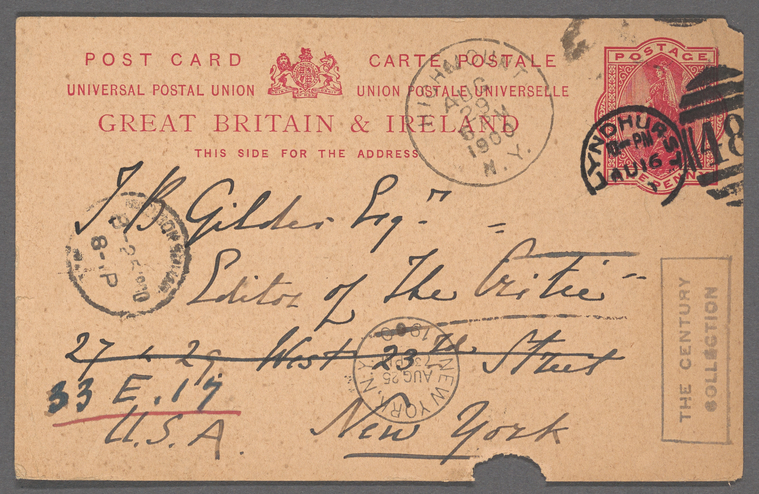 POST CARD CARTE POSTALE
UNIVERSAL POSTAL UNION UNION POSTALE UNIVERSELLE
GREAT BRITAIN & IRELAND
THIS SIDE FOR THE ADDRESS
POSTAGE
ONE PENNY
HIGHMOUNT
AUG
29
1900
N.Y.
LYNDHURST
PM
AU 16
48
J B Gilder Esqr
Editor of The Critic
27 & 29 West 23rd Street
33 E. 17
U.S.A. New York
8-P
NEW YORK, N.Y.
AUG 25
1900
THE CENTURY
COLLECTION